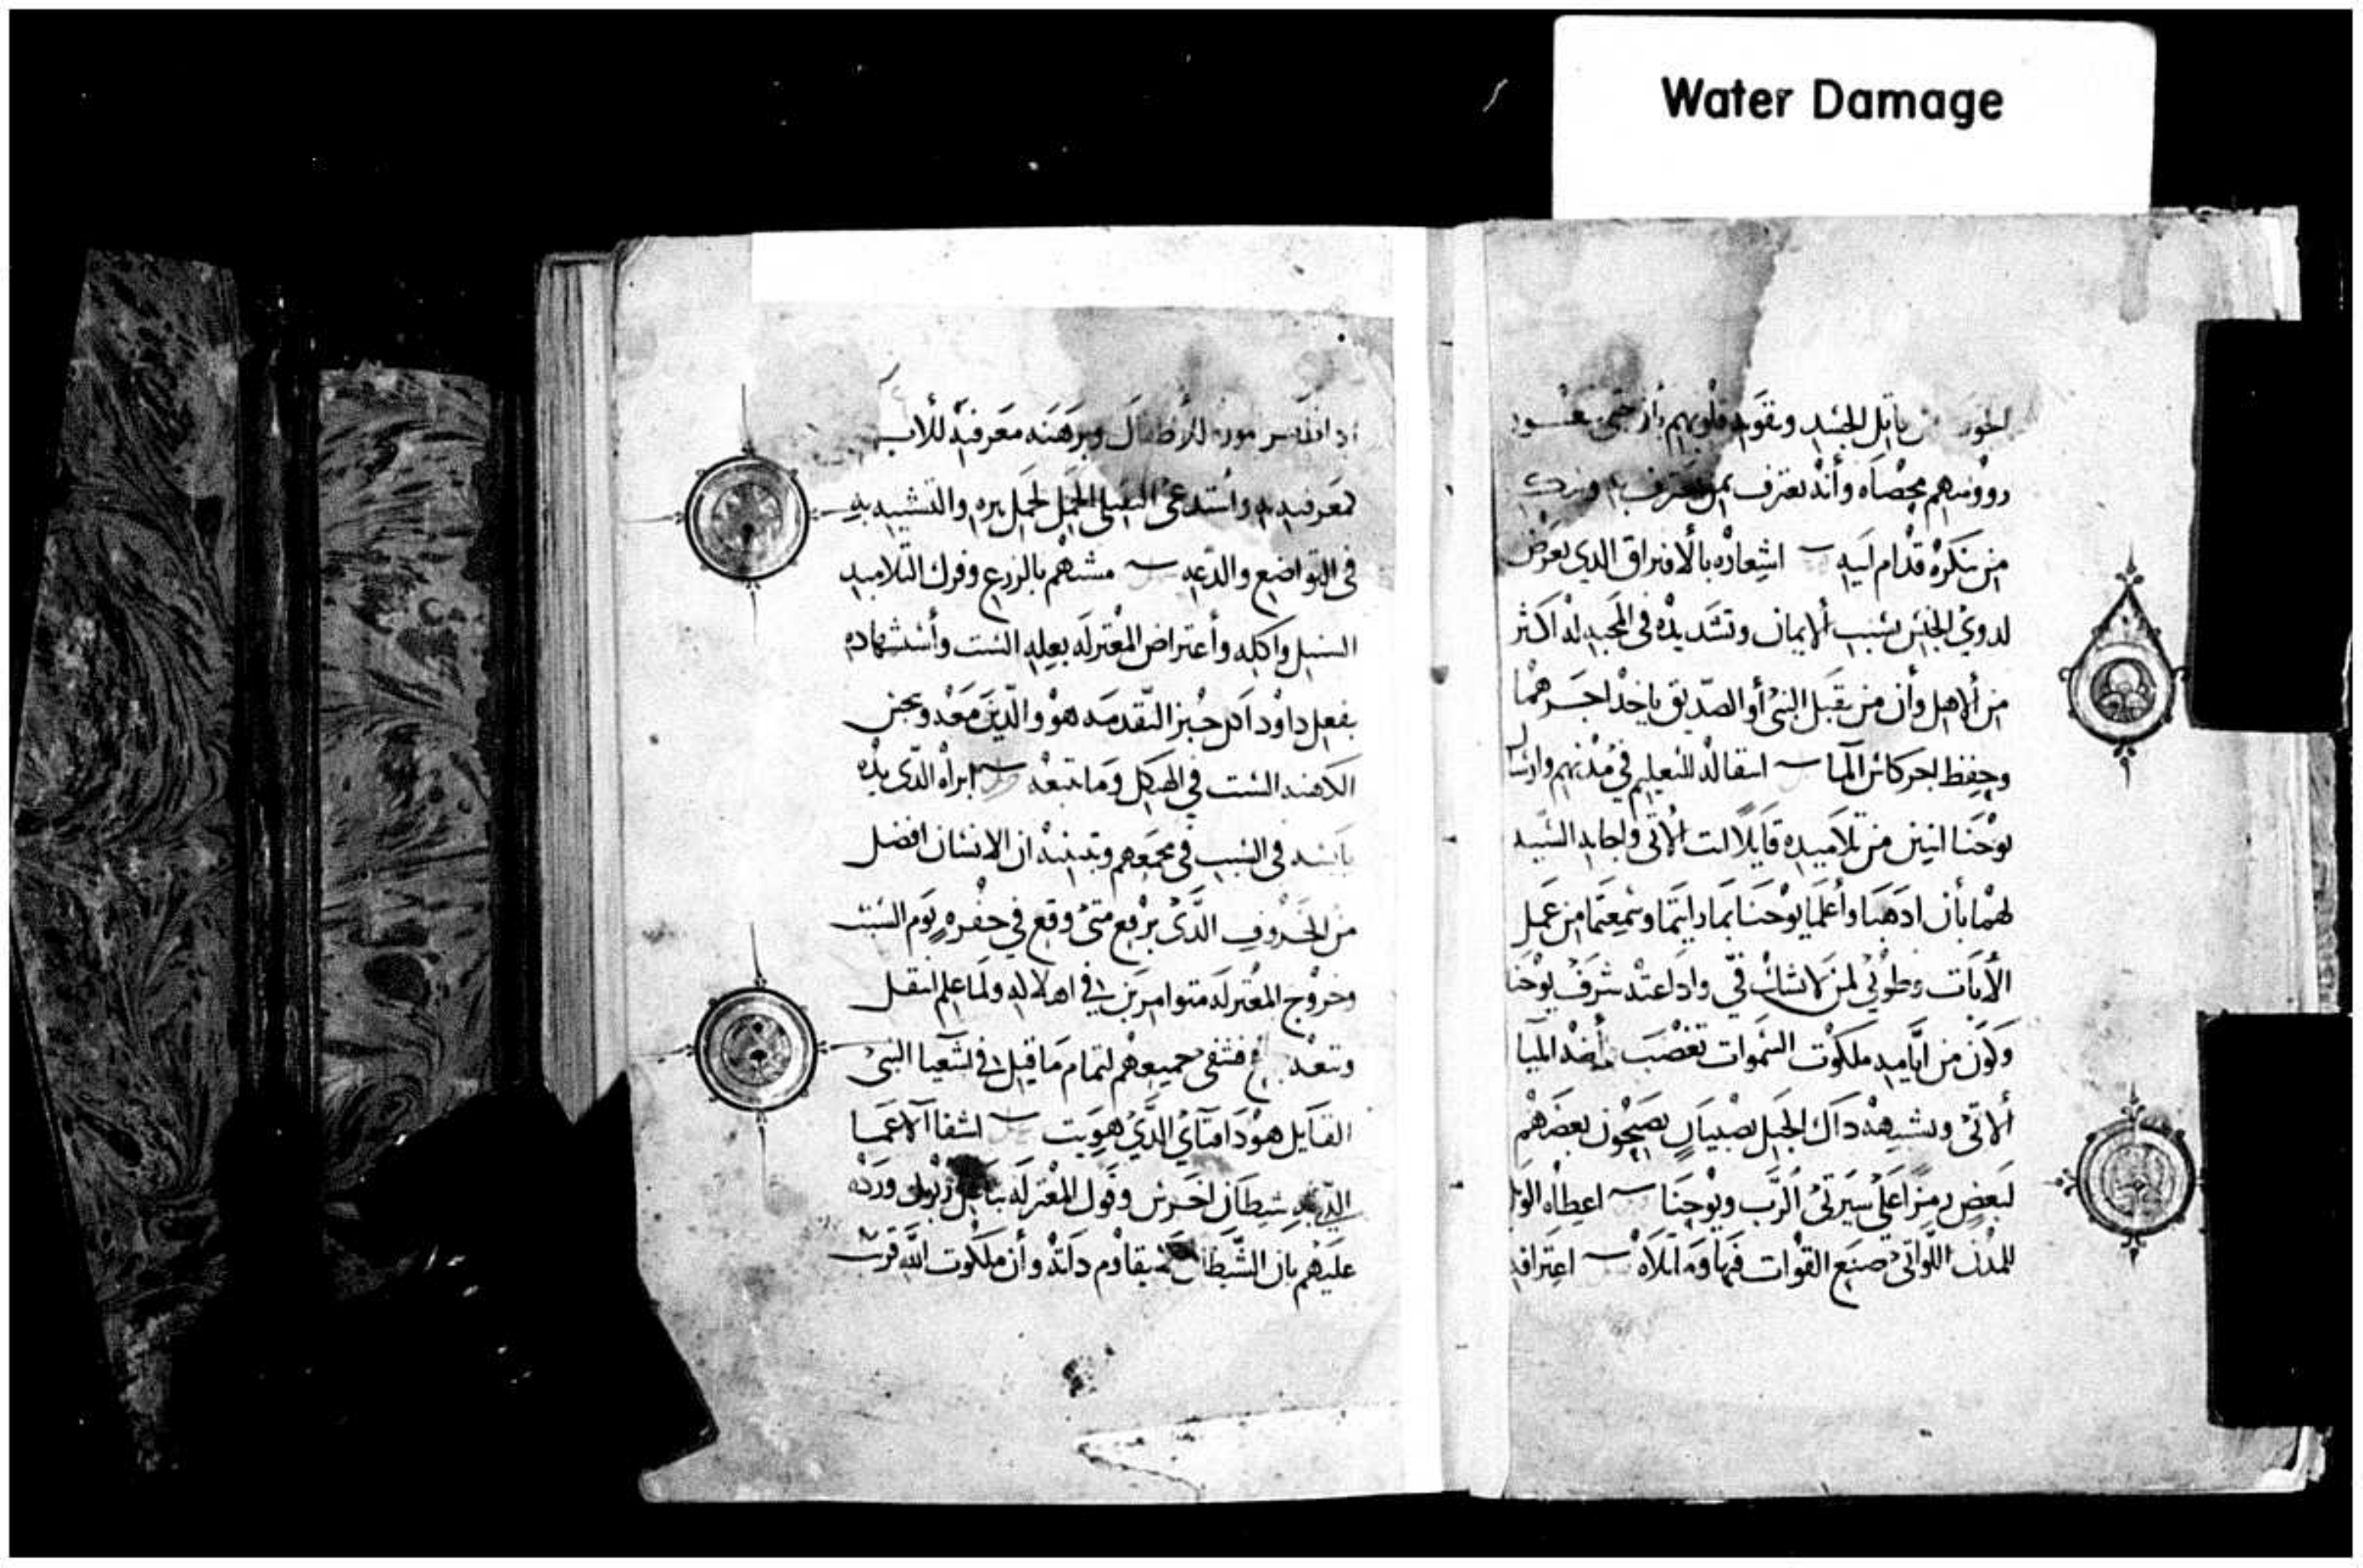 Water Damage
قاتل الجسد وتقويه قلوبهم بأن حتى شعور
رووسهم محصاه وأنه يعترف بمن يعترف به
من ينكره قدام ابيه اشعاره بالافتراق الدي يعرض
لدوي الجنس بسبب الايمان وتشديده في المحبه له اكثر
من الاهل وأن من يقبل النبي أو الصديق ياخد اجرهما
وحفظ اجر كاس الما انتقاله للتعليم في مدنهم وارسال
يوحنا اثنين من تلاميده قايلا انت الاتي واجابه السيد
لهما بأن ادهبا وأعلما يوحنا بما رايتما وسمعتما من عمل
الأيات وطوبي لمن لا يشك في واداعته شرف يوحنا
وكون من ايامه ملكوت السموات تغصب أنه ايليا
ألاتي وتشبيهه داك الجيل بصبيان يصيحون بعضهم
لبعض رمزا علي سيرتي الرب ويوحنا اعطاه الويل
للمدن اللواتي صنع القوات فيها وما تلاه اعترافه
للأطفال وبرهنه معرفته للأب
لمعرفته به واستدعى الثقيلى الحمل لحمل نيره والتشبيه به
في التواضع والدعه مشيهم بالزرع وفرك التلاميد
السنبل واكله وأعتراض المعتزله بعله السبت وأستشهاده
بفعل داوود اكل خبز التقدمه هو والدين معه وبحق
الكهنه السبت في الهيكل وما تبعه ابراه الدي يده
يابسه في السبت في مجمعهم وتبيينه ان الانسان افضل
من الخروف الدي يرفع متى وقع في حفره يوم السبت
وخروج المعتزله متوامرين في اهلاكه ولما علم انتقل
وتبعه فشفى جميعهم لتمام ما قيل في اشعيا النبي
القايل هودا فتاي الدي هويت اشفا الاعما
الدي به شيطان اخرس وقول المعتزله بباعل زبول ورده
عليهم بان الشيطان يقاوم داته وأن ملكوت الله قربت